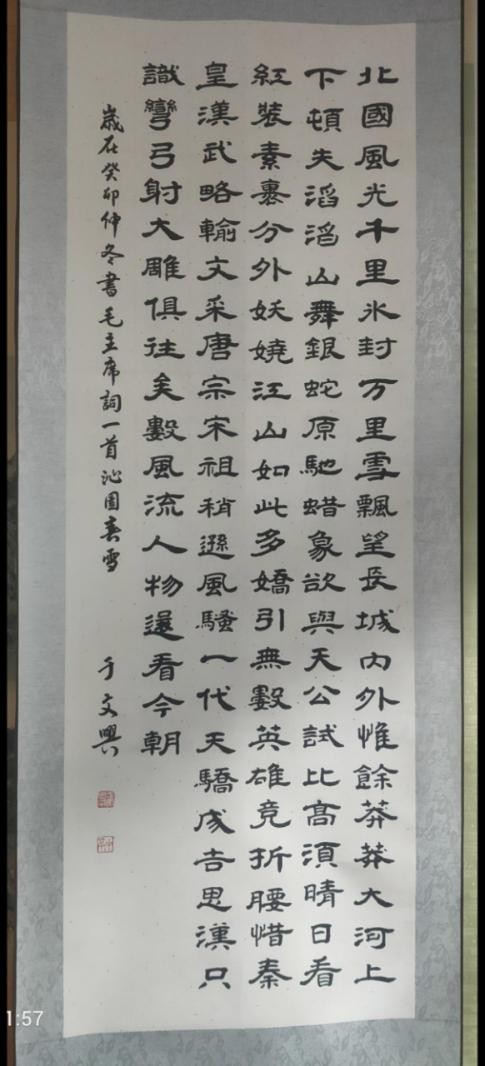 北國風光千里冰封万里雪飄望長城內外惟餘莽莽大河上
下頓失滔滔山舞銀蛇原馳蜡象欲與天公試比高須晴日看
紅裝素裹分外妖嬈江山如此多嬌引無數英雄竞折腰惜秦
皇漢武略輸文采唐宗宋祖稍遜風騷一代天驕成吉思漢只
識彎弓射大雕俱往矣數風流人物還看今朝
歲在癸卯仲冬書毛主席詞一首沁园春雪 于文興
1:57